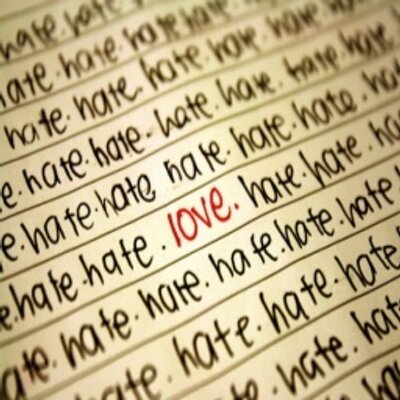 hate. hate. hate
ate. hate. hate hate hate
hate. hate. hate. hate. hate
e. hate. hate. hate. hate. hate. hate
e. hate. hate hate. hate. hate. h
e. hate. hate. love. hate. hate. ha
ate. hate. hate. hate. hate. hate
ate. hate. hate. hate
hate. hate